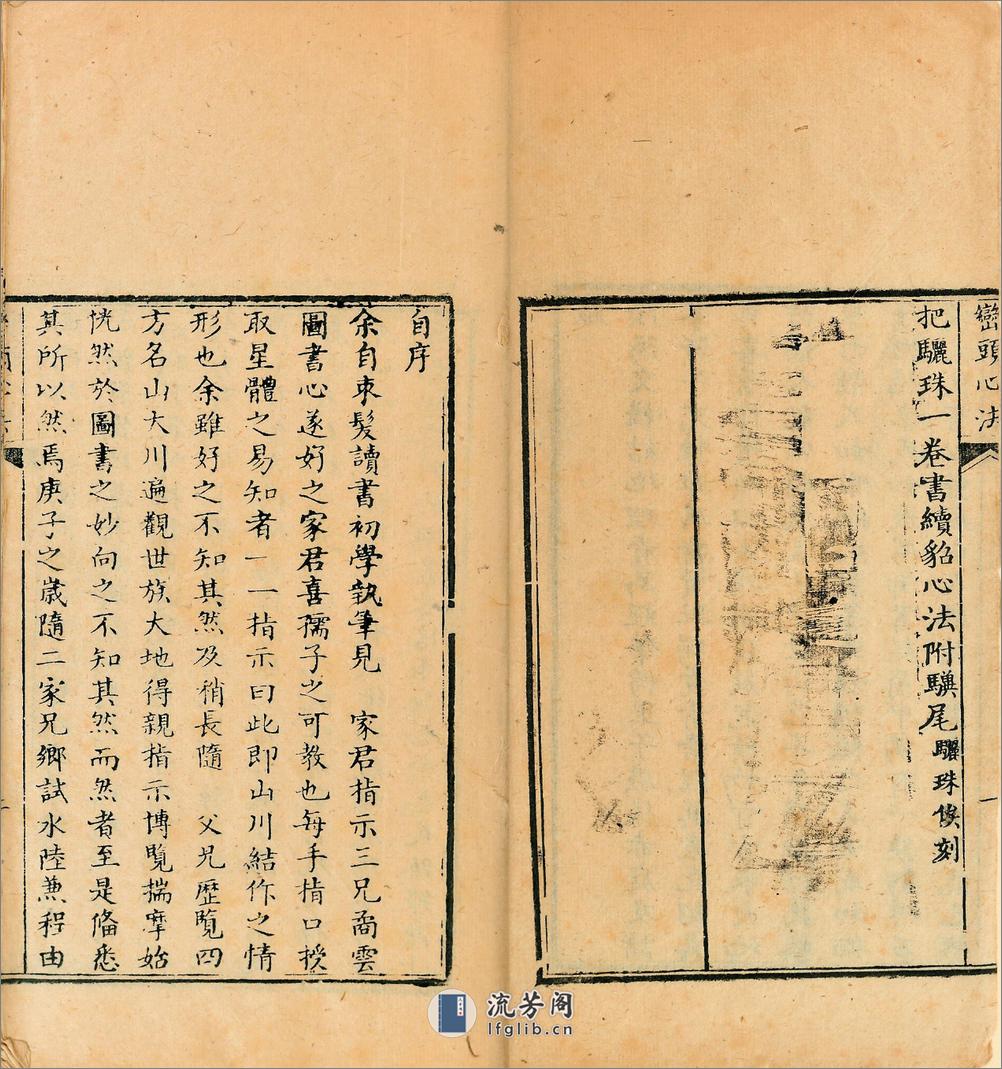 巒頭心法
把驪珠一卷書續貂心法附驥尾驪珠俟刻
一
自序
余自束髮讀書初學執筆見　家君指示三兄矞雲
圖書心遂好之家君喜孺子之可教也每手指口授
取星體之易知者一一指示曰此即山川結作之情
形也余雖好之不知其然及稍長隨　父兄歷覽四
方名山大川遍觀世族大地得親指示博覽揣摩始
恍然於圖書之妙向之不知其然而然者至是俻悉
其所以然焉庚子之歲隨二家兄鄉試水陸蒹程由
流芳阁
lfglib.cn